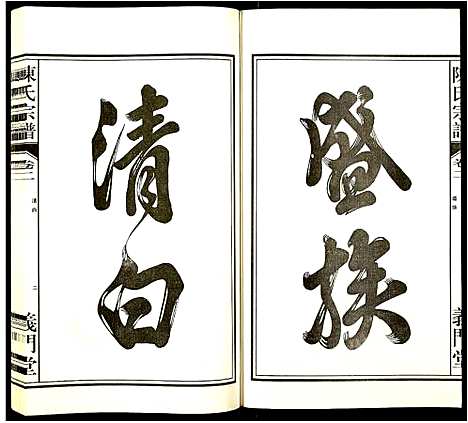 陳氏宗譜
卷二
義門堂
盛族
清白
陳氏宗譜
卷二
清白
二
義門堂